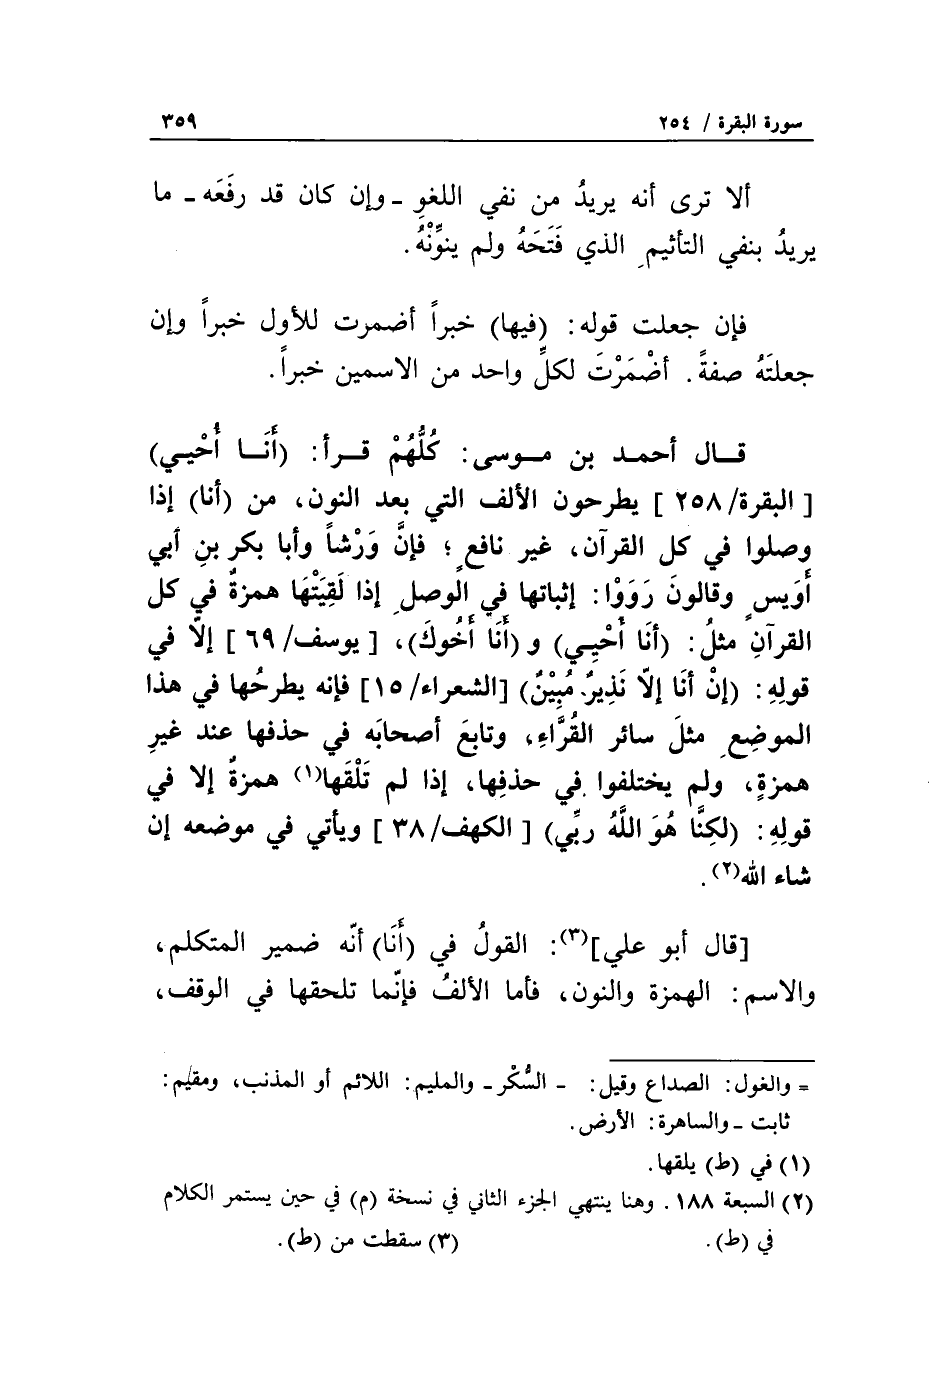 سورة البقرة / ٢٥٤ ٣٥٩
ألا ترى أنه يريدُ من نفي اللغوِ ـ وإن كان قد رفَعَه ـ ما
يريدُ بنفي التأثيمِ الذي فَتَحَهُ ولم ينوِّنْهُ.
فإن جعلت قوله: (فيها) خبراً أضمرت للأول خبراً وإن
جعلتَهُ صفةً. أضْمَرْتَ لكلِّ واحد من الاسمين خبراً.
قـال أحمـد بن مـوسى: كُلُّهُمْ قـرأ: (أَنَـا أُحْيـي)
[البقرة/٢٥٨] يطرحون الألف التي بعد النون، من (أنا) إذا
وصلوا في كل القرآن، غير نافعٍ؛ فإنَّ وَرْشاً وأبا بكر بنِ أبي
أُوَيسٍ وقالونَ رَوَوْا: إثباتها في الوصلِ إذا لَقِيَتْهَا همزةٌ في كل
القرآنِ مثلُ: (أَنَا أُحْيِـي) و (أَنَا أَخُوكَ)، [يوسف/٦٩] إلّا في
قولِهِ: (إنْ أنَا إلّا نَذِيرٌ مُبِيْنٌ) [الشعراء/١٥] فإنه يطرحُها في هذا
الموضِعِ مثلَ سائر القُرَّاءِ، وتابعَ أصحابَه في حذفها عند غيرِ
همزةٍ، ولم يختلفوا في حذفِها، إذا لم تَلْقَها(١) همزةٌ إلا في
قولِهِ: (لكِنَّا هُوَ اللَّهُ ربِّي) [الكهف/٣٨] ويأتي في موضعه إن
شاء الله(٢).
[قال أبو علي](٣): القولُ في (أَنَا) أنّه ضمير المتكلم،
والاسم: الهمزة والنون، فأما الألفُ فإنّما تلحقها في الوقف،
= والغول: الصداع وقيل: - السُّكْر ـ والمليم: اللائم أو المذنب، ومقيم:
ثابت ـ والساهرة: الأرض.
(١) في (ط) يلقها.
(٢) السبعة ١٨٨. وهنا ينتهي الجزء الثاني في نسخة (م) في حين يستمر الكلام
في (ط). (٣) سقطت من (ط).